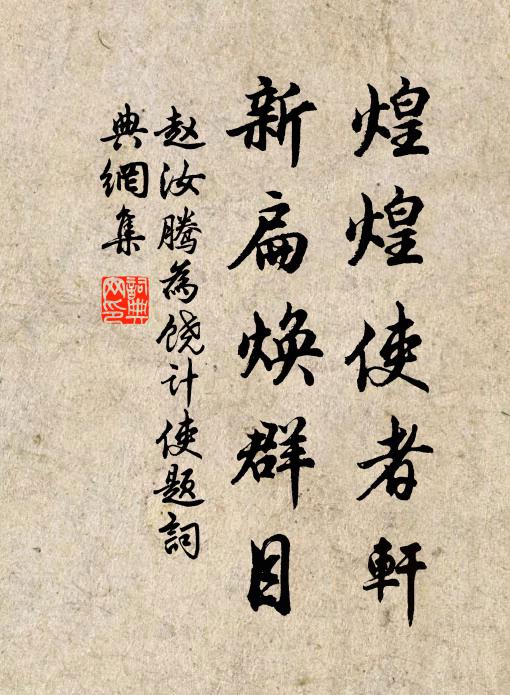 煌煌使者軒
新扁焕群目
赵汝腾為饶计使题詞
典網集
詞典
网印